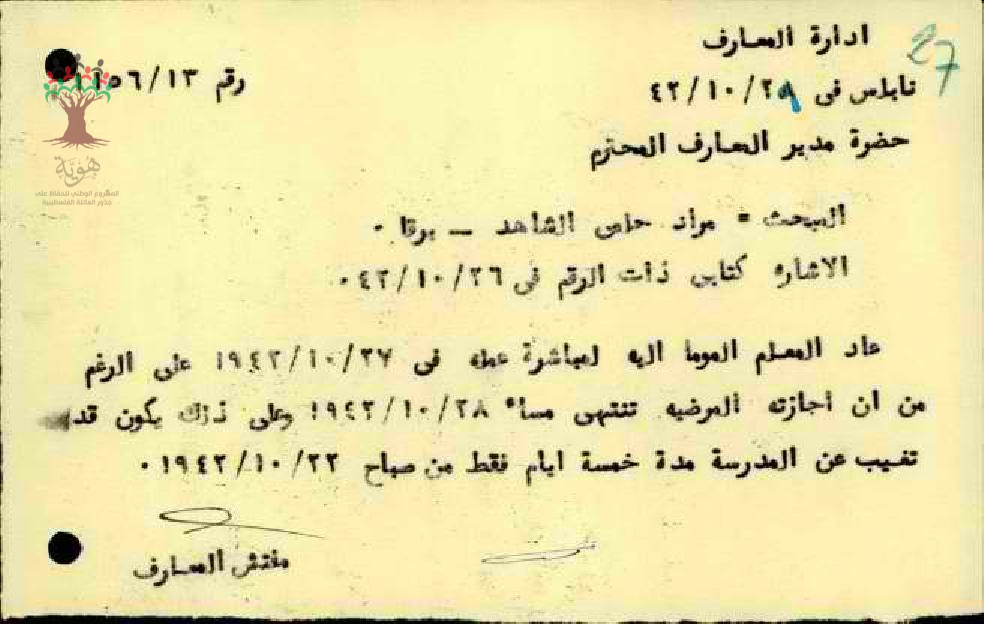 27
ادارة المعارف
نابلس فى ٤٢/١٠/٢٨
رقم ١١٥٦/١٣
حضرة مدير المعارف المحترم
هُويّة
المشروع الوطني للحفاظ على
جذور العائلة الفلسطينية
المبحث = مراد حلمى الشاهد — برقا ٠
الاشاره كتابى ذات الرقم فى ٤٢/١٠/٢٦ ٠
عاد المعلم الموما اليه لمباشرة عمله فى ١٩٤٢/١٠/٢٧ على الرغم
من ان اجازته المرضيه تنتهى مساء ١٩٤٢/١٠/٢٨ وعلى ذلك يكون قد
تغيب عن المدرسة مدة خمسة ايام فقط من صباح ١٩٤٢/١٠/٢٢ ٠
مفتش المعارف